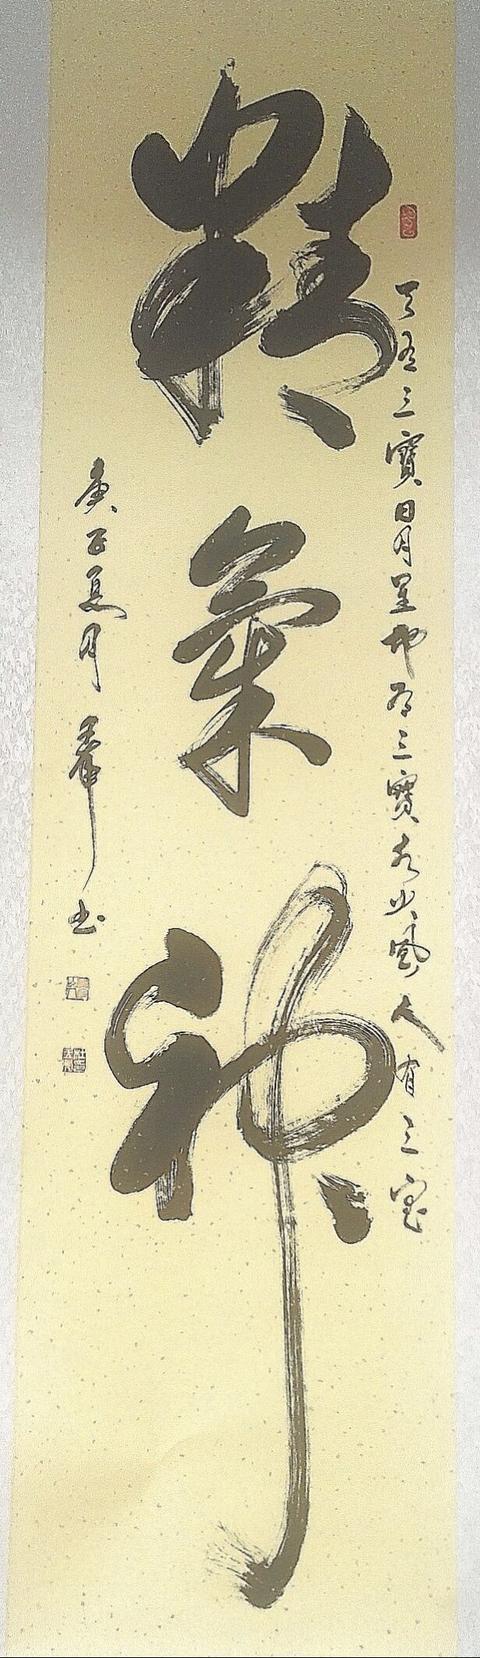 天有三寶日月星地有三寶水火風人有三宝
精氣神
庚子夏月
书